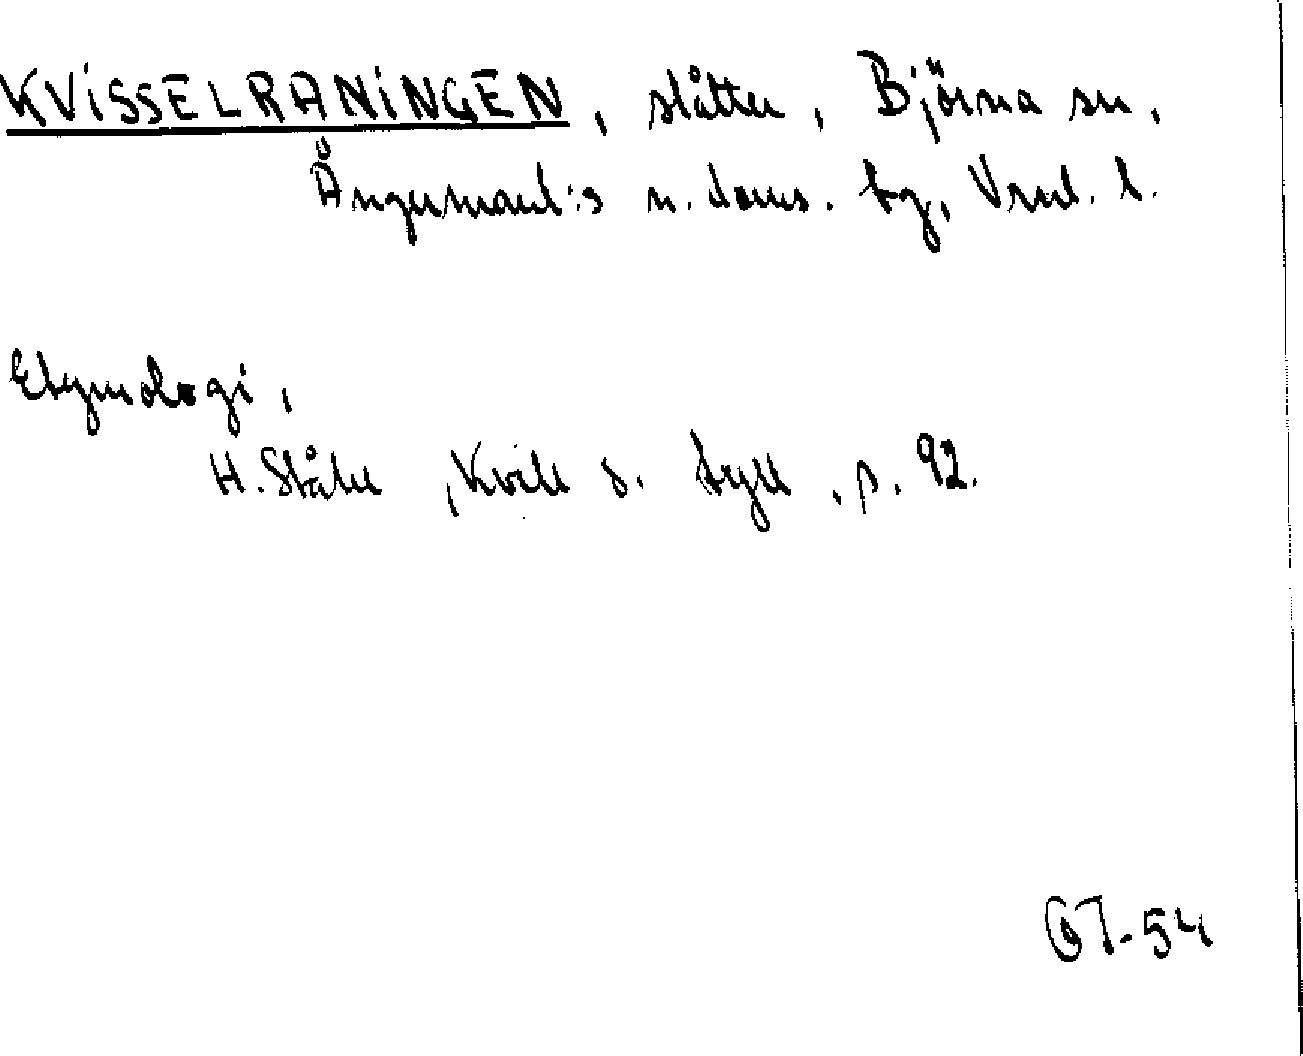 KVISSELRANINGEN, slåtter, Björna sn,
Ångermanl:s n. doms. tg, Vnl. l.
Etymologi,
H. Ståhl, Kvill o. tyll, s. 92.
GT-54